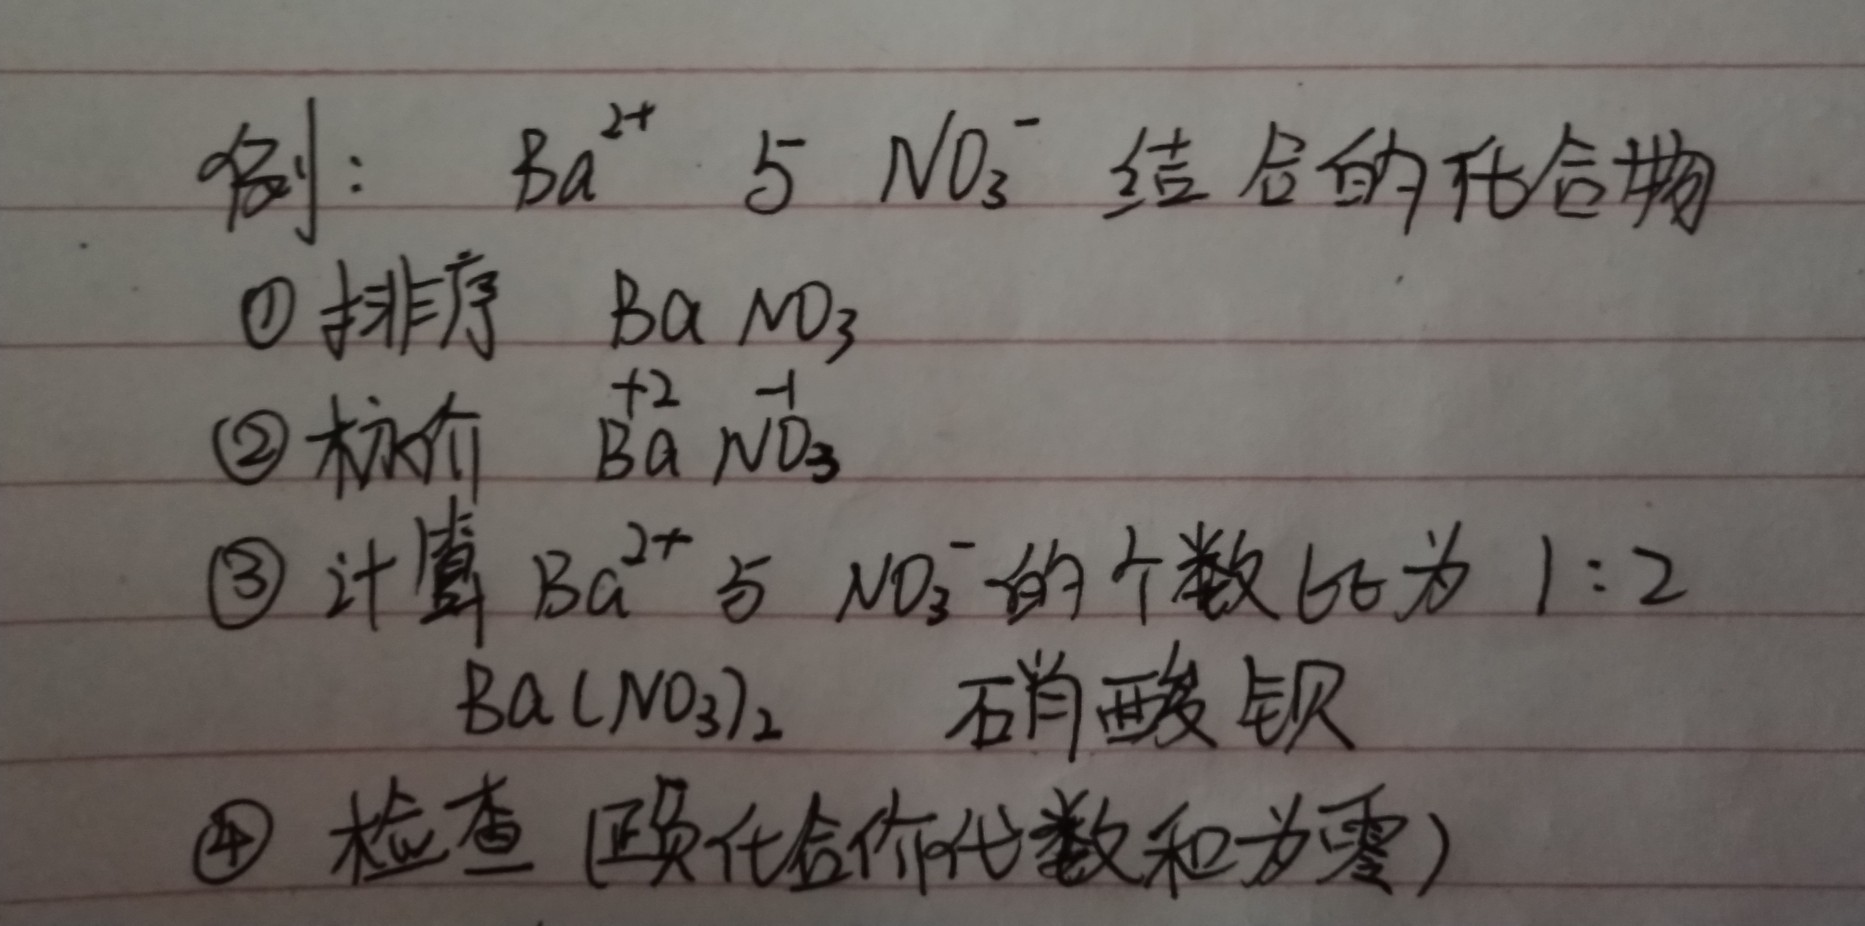 例： Ba²⁺ 与 NO₃⁻ 结合的化合物
① 排序 Ba NO₃
+2 -1
② 标价 Ba NO₃
③ 计算 Ba²⁺ 与 NO₃⁻ 的个数比为 1:2
Ba(NO₃)₂ 硝酸钡
④ 检查 (正负化合价代数和为零)